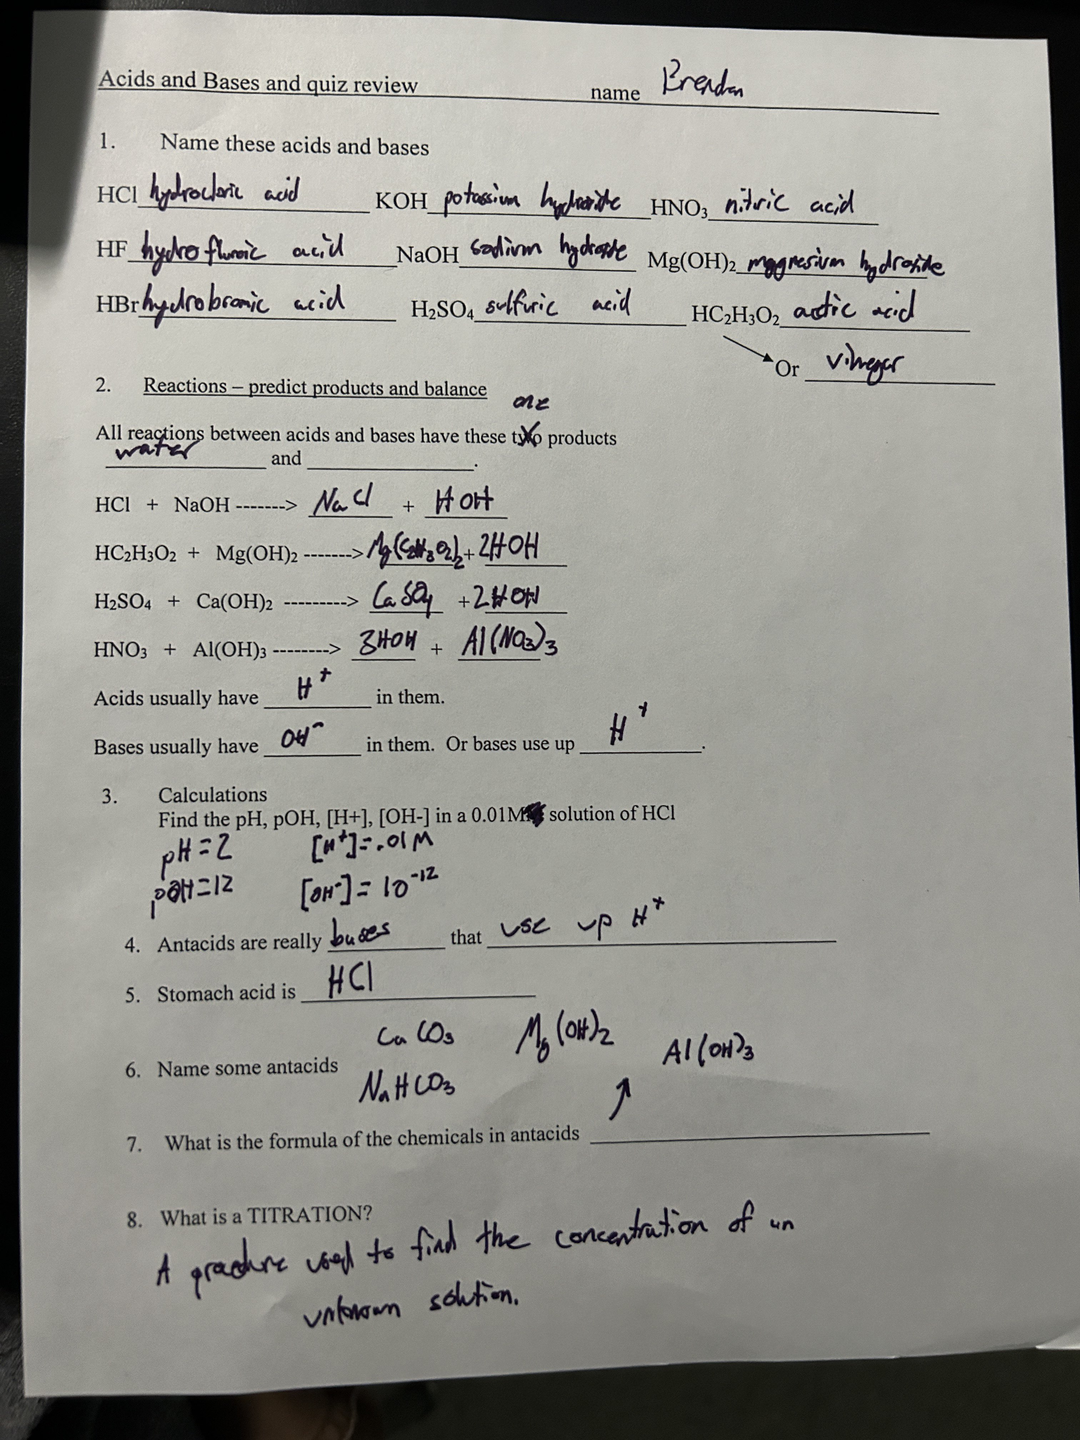 Acids and Bases and quiz review name Brendan
1. Name these acids and bases
HCl hydrocloric acid KOH potassium hydroxide HNO3 nitric acid
HF hydrofluroic acid NaOH sodium hydroxide Mg(OH)2 magnesium hydroxide
HBr hydrobromic acid H2SO4 sulfuric acid HC2H3O2 acetic acid
Or vinegar
2. Reactions – predict products and balance
one
All reactions between acids and bases have these two products
water and
HCl + NaOH -------> NaCl + HOH
HC2H3O2 + Mg(OH)2 -------> Mg(C2H3O2)2 + 2HOH
H2SO4 + Ca(OH)2 ---------> CaSO4 + 2HOH
HNO3 + Al(OH)3 --------> 3HOH + Al(NO3)3
Acids usually have H+ in them.
Bases usually have OH- in them. Or bases use up H+.
3. Calculations
Find the pH, pOH, [H+], [OH-] in a 0.01M solution of HCl
pH=2 [H+]=.01M
pOH=12 [OH-]=10-12
4. Antacids are really bases that use up H+
5. Stomach acid is HCl
CaCO3 Mg(OH)2 Al(OH)3
6. Name some antacids
NaHCO3
7. What is the formula of the chemicals in antacids
8. What is a TITRATION?
A used to find the concentration of un
unknown solution.